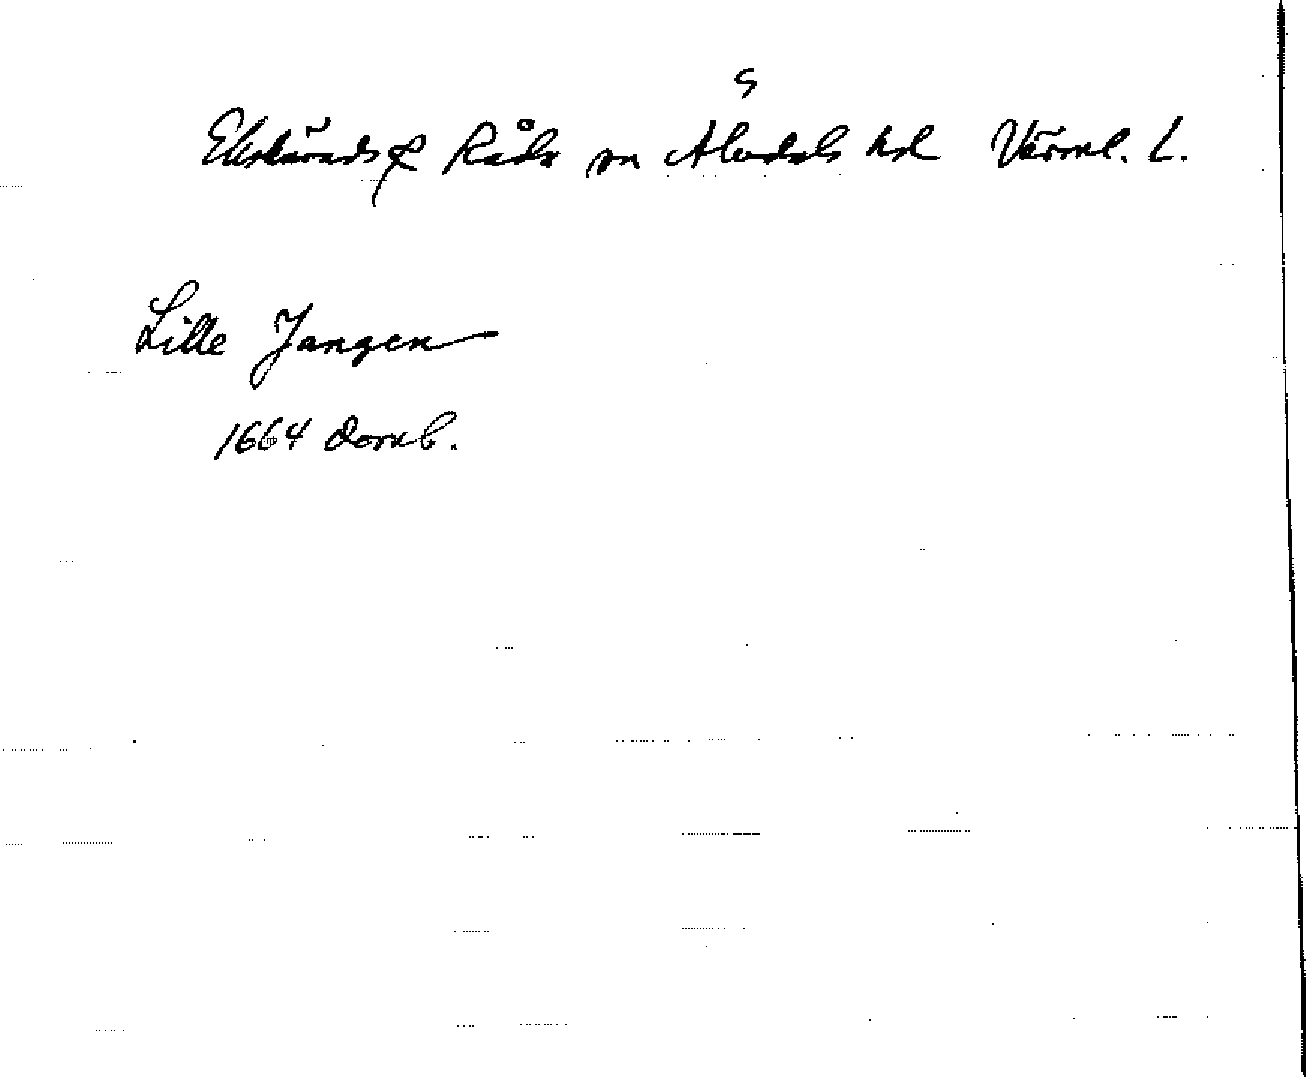 Ekshärads & Råda sn Älvdals hd Värml. L.
Lille Jangen
1664 Domb.